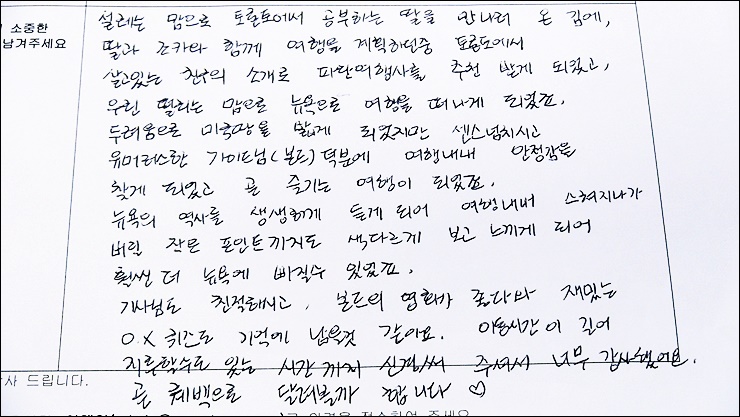 소중한
남겨주세요
설레는 맘으로 토론토에서 공부하는 딸을 만나러 온 김에,
딸과 조카와 함께 여행을 계획하던중 토론토에서
살고있는 친구의 소개로 파란여행사를 추천 받게 되었고,
우린 떨리는 맘으로 뉴욕으로 여행을 떠나게 되었죠.
두려움으로 미국땅을 밟게 되었지만 센스넘치시고
유머러스한 가이드님(본드)덕분에 여행내내 안정감을
찾게 되었고 곧 즐기는 여행이 되었죠.
뉴욕의 역사를 생생하게 듣게 되어 여행내내 스쳐지나가
버릴 작은 포인트까지도 색다르게 보고 느끼게 되어
훨씬 더 뉴욕에 빠질수 있었죠.
기사님도 친절하시고, 본드의 영화가 좋다바 재밌는
O.X 퀴즈도 기억에 남을것 같아요. 이동시간이 길어
지루할수도 있는 시간까지 신경써 주셔서 너무 감사했어요.
사 드립니다.
곧 퀘백으로 달려볼까 합니다 ♡